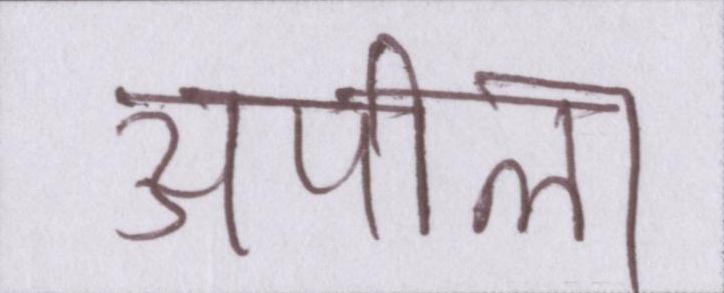 अपीला